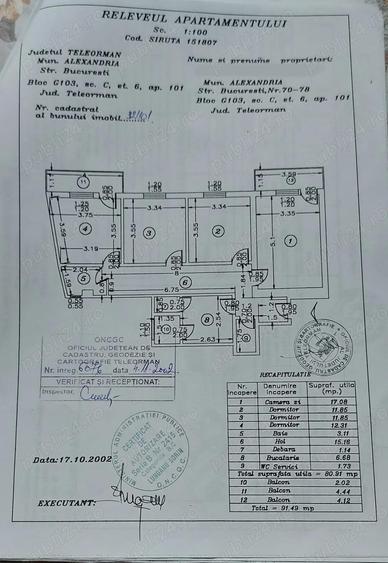 RELEVEUL APARTAMENTULUI
Sc. 1:100
Cod. SIRUTA 151807
Judetul TELEORMAN
Mun. ALEXANDRIA
Str. Bucuresti
Bloc G103, sc. C, et. 6, ap. 101
Jud. Teleorman
Nr. cadastral
al bunului imobil
Nume si prenume proprietari:
Mun. ALEXANDRIA
Str. Bucuresti, Nr.70-78
Bloc G103, sc. C, et. 6, ap. 101
Jud. Teleorman
1.11
11
1.25
1.20
3.75
3.59
4
3.55
3.19
1.20
1.55
3.34
3.55
3
1.20
1.55
3.34
3.55
2
3.59
1.15
12
3.35
5.1
1
2.04
5
6
6.75
1.84
1.35
10
2.54
8
2.63
9
1.5
ONCGC
OFICIUL JUDETEAN DE
CADASTRU, GEODEZIE SI
CARTOGRAFIE TELEORMAN
Nr. inreg 6076 data 4.11.2002
VERIFICAT SI RECEPTIONAT:
Inspector,
Data:17.10.2002
EXECUTANT:
RECAPITULATIE
Nr. incapere Denumire incapere Supraf. utila (mp.)
1 Camera zi 17.08
2 Dormitor 11.85
3 Dormitor 11.85
4 Dormitor 12.31
5 Baie 3.11
6 Hol 15.16
7 Debara 1.14
8 Bucatarie 6.68
9 WC Servici 1.73
Total suprafata utila = 80.91 mp
10 Balcon 2.02
11 Balcon 4.44
12 Balcon 4.12
Total = 91.49 mp